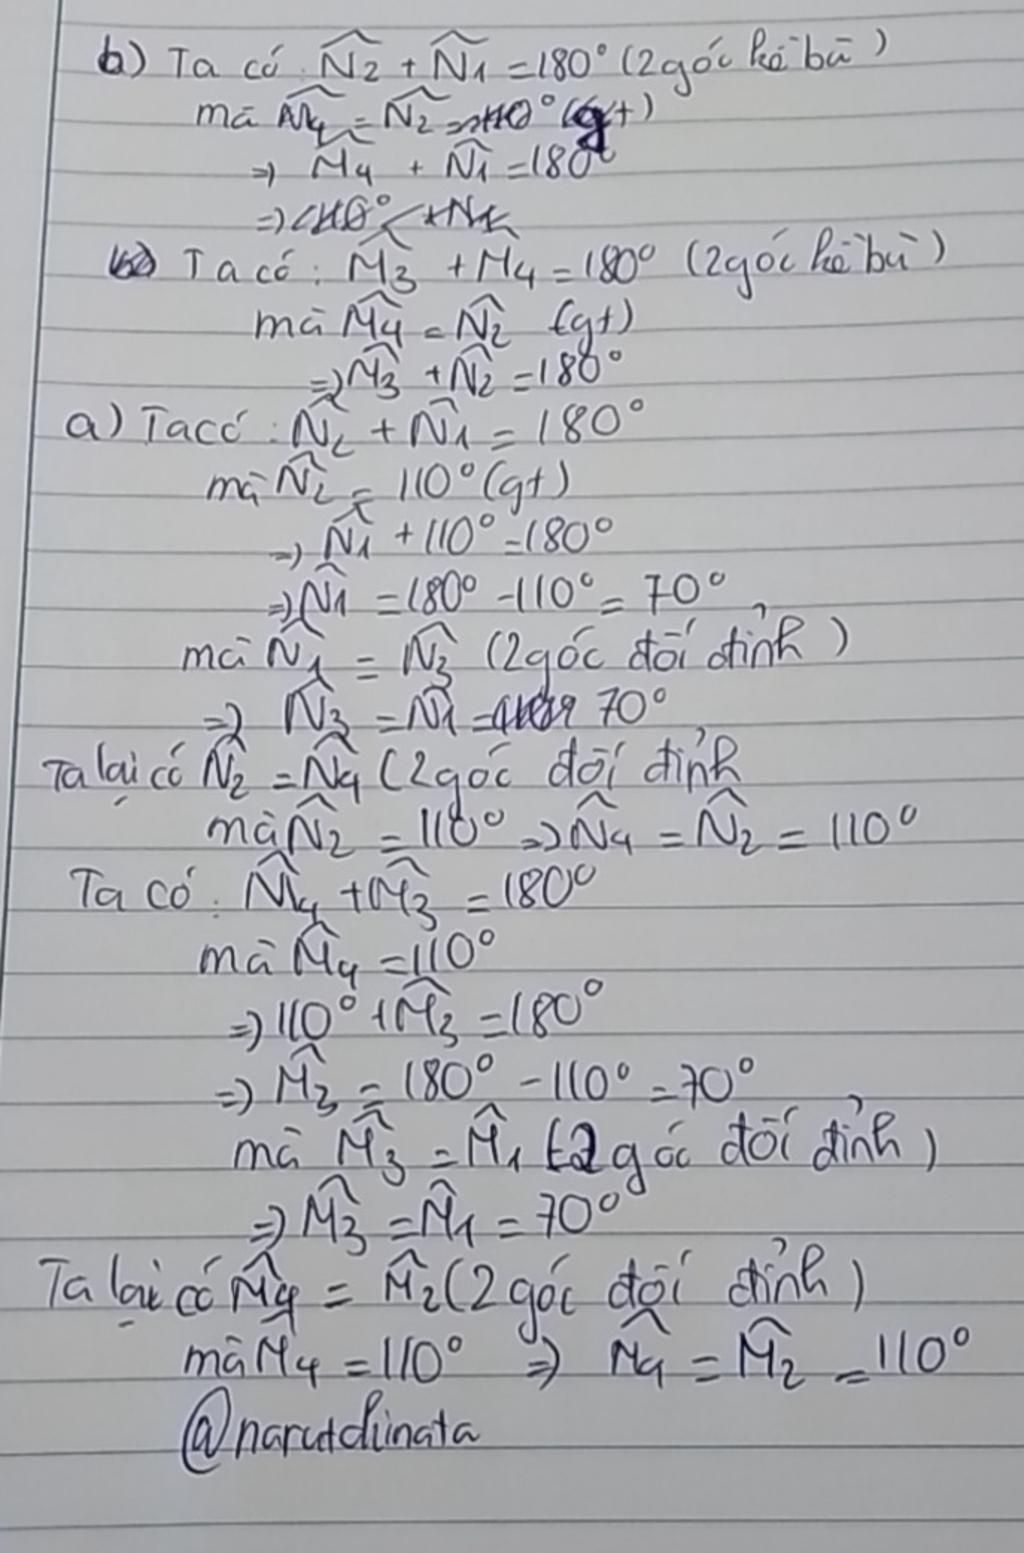 b) Ta có: N̂2 + N̂1 = 180° (2 góc kề bù)
mà M̂4 = N̂2 = 110° (gt)
=> M̂4 + N̂1 = 180°
=>
Ta có: M̂3 + M4 = 180° (2 góc kề bù)
mà M̂4 = N̂2 (gt)
=> M̂3 + N̂2 = 180°
a) Ta có: N̂2 + N̂1 = 180°
mà N̂2 = 110° (gt)
=> N̂1 + 110° = 180°
=> N̂1 = 180° - 110° = 70°
mà N̂1 = N̂3 (2 góc đối đỉnh)
=> N̂3 = N̂1 = 70°
Ta lại có N̂2 = N̂4 (2 góc đối đỉnh
mà N̂2 = 110° => N̂4 = N̂2 = 110°
Ta có: M̂4 + M̂3 = 180°
mà M̂4 = 110°
=> 110° + M̂3 = 180°
=> M̂3 = 180° - 110° = 70°
mà M̂3 = M̂1 (2 góc đối đỉnh)
=> M̂3 = M̂1 = 70°
Ta lại có M̂4 = M̂2 (2 góc đối đỉnh)
mà M4 = 110° => M̂4 = M̂2 = 110°